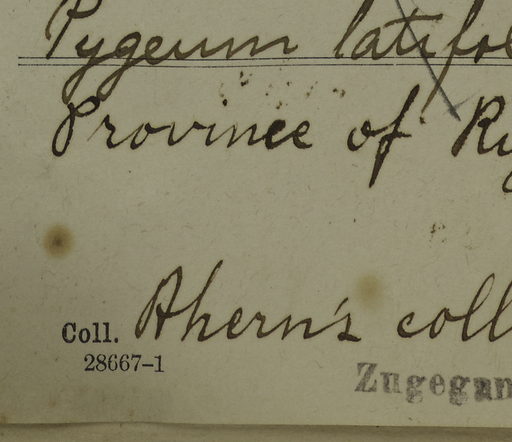 Pygeum latifol
Province of Ri
Coll. Ahern's coll
28667-1
Zugegan